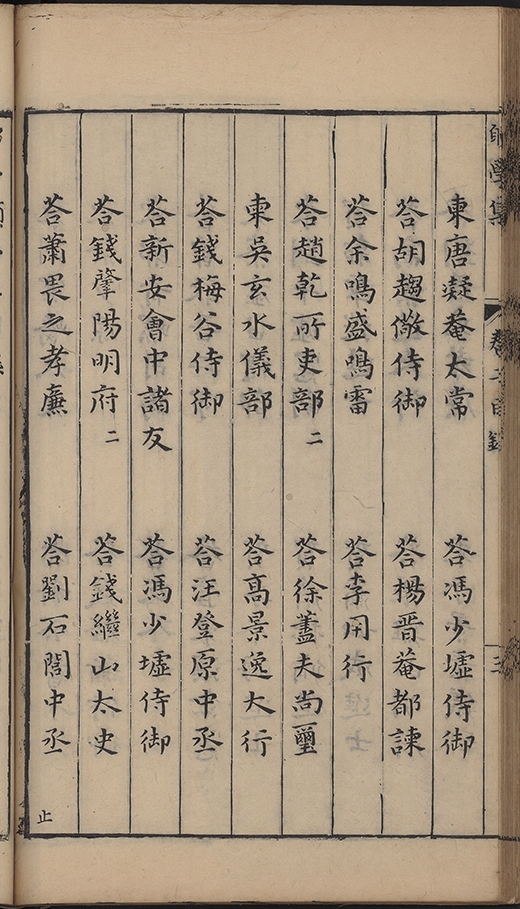 柬唐凝菴太常
荅馮少墟侍御
荅胡趨儆侍御
荅楊晋菴都諫
荅余鳴盛鳴雷
荅李用行
荅趙乾所吏部二
荅徐藎夫尚璽
柬吳玄水儀部
荅高景逸大行
荅錢梅谷侍御
荅汪登原中丞
荅新安會中諸友
荅馮少墟侍御
荅錢肇陽明府二
荅錢繼山太史
荅蕭畏之孝廉
荅劉石閭中丞
止
學集
卷
目錄
三